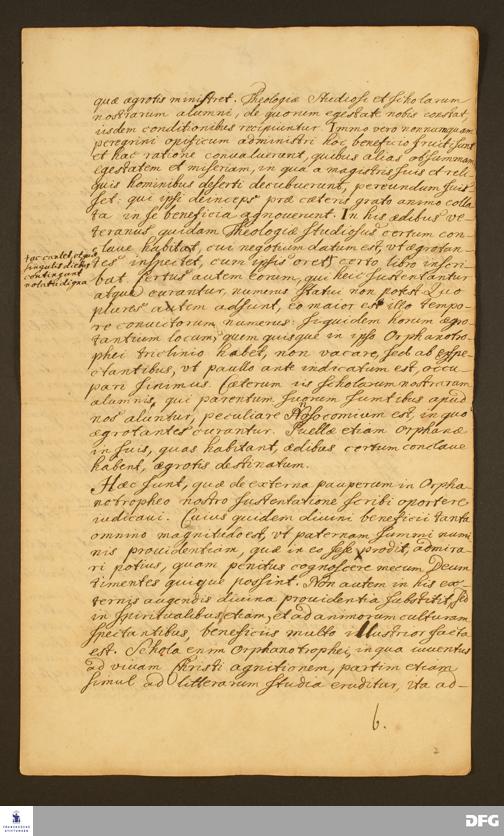 quæ ægrotis ministret. Theologiæ Studiosi et scholarum
nostrarum alumni, de quorum egestate nobis constat,
iisdem conditionibus recipiuntur. Immo vero nonnunquam
peregrini opificum administri hoc beneficio fruiti sunt
et hac ratione convaluerunt, quibus alias ob summam
egestatem et miseriam, in qua a magistris suis et reli-
quis hominibus deserti decubuerunt, pereundum fuis-
set: qui ipsi deinceps præ cæteris grato animo colla-
ta in se beneficia agnouerunt. In his ædibus ve-
teranus quidam Theologiæ Studiosus certum con-
claue habitat, cui negotium datum est, vt ægrotan-
tes inspiciat, cum ipsis oret, certo libro inscri-
bat. Certus autem eorum, qui heic sustentantur
atque curantur, numerus statui non potest. Quo
plures autem adsunt, eo maior est illo tempo-
re convictorum numerus: siquidem horum ægro-
tantium locum, quem quisque in ipso Orphanotro-
phei triclinio habet, non vacare, sed ab exspe-
ctantibus, vt paullo ante indicatum est, occu-
pari sinimus. Cæterum iis scholarum nostrarum
alumnis, qui parentum suorum sumtibus apud
nos aluntur, peculiare Nosocomium est, in quo
ægrotantes curantur. Puellæ etiam orphanæ
in suis, quas habitant, ædibus certum conclaue
habent, ægrotis destinatum.
Hæc sunt, quæ de externa pauperum in Orpha-
notropheo nostro sustentatione scribi oportere
iudicaui. Cuius quidem diuini beneficii tanta
omnino magnitudo est, vt paternam summi numi-
nis prouidentiam, quæ in eo sese prodit, admira-
ri potius, quam penitus cognoscere mecum Deum
timentes quique possint. Non autem in his ex-
ternis augendis diuina prouidentia substitit, sed
in spiritualibus etiam, et ad animorum culturam
spectantibus, beneficiis multo illustrior facta
est. Schola enim Orphanotrophei, in qua iuuentus
ad viuam Christi agnitionem, partim etiam
simul ad litterarum studia eruditur, ita ad-
singulis diebus
contingunt
notatu digna
6.
2
FRANCKESCHE STIFTUNGEN
DFG